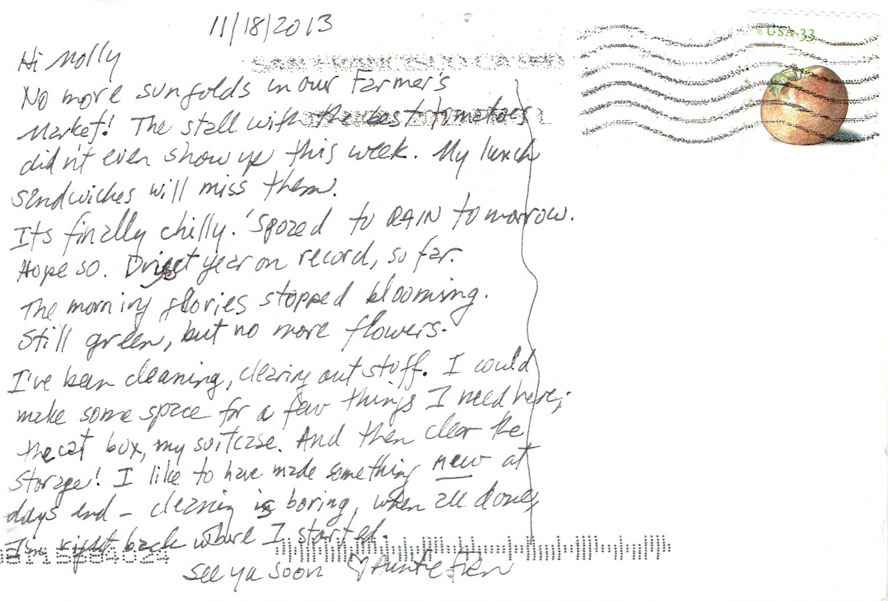 11/18/2013
USA 33
Hi Molly
SAN FRANCISCO CA
No more sungolds in our Farmer's
Market! The stall with the best tomatoes
didn't even show up this week. My lunch
sandwiches will miss them.
Its finally chilly. 'Spozed to RAIN tomorrow.
Hope so. Driest year on record, so far.
The morning glories stopped blooming.
Still green, but no more flowers.
I've been cleaning, clearing out stuff. I could
make some space for a few things I need here;
the cat box, my suitcase. And then clear the
storage! I like to have made something new at
days end – cleaning is boring, when all done,
I'm right back where I started.
See ya soon ♡ Auntie